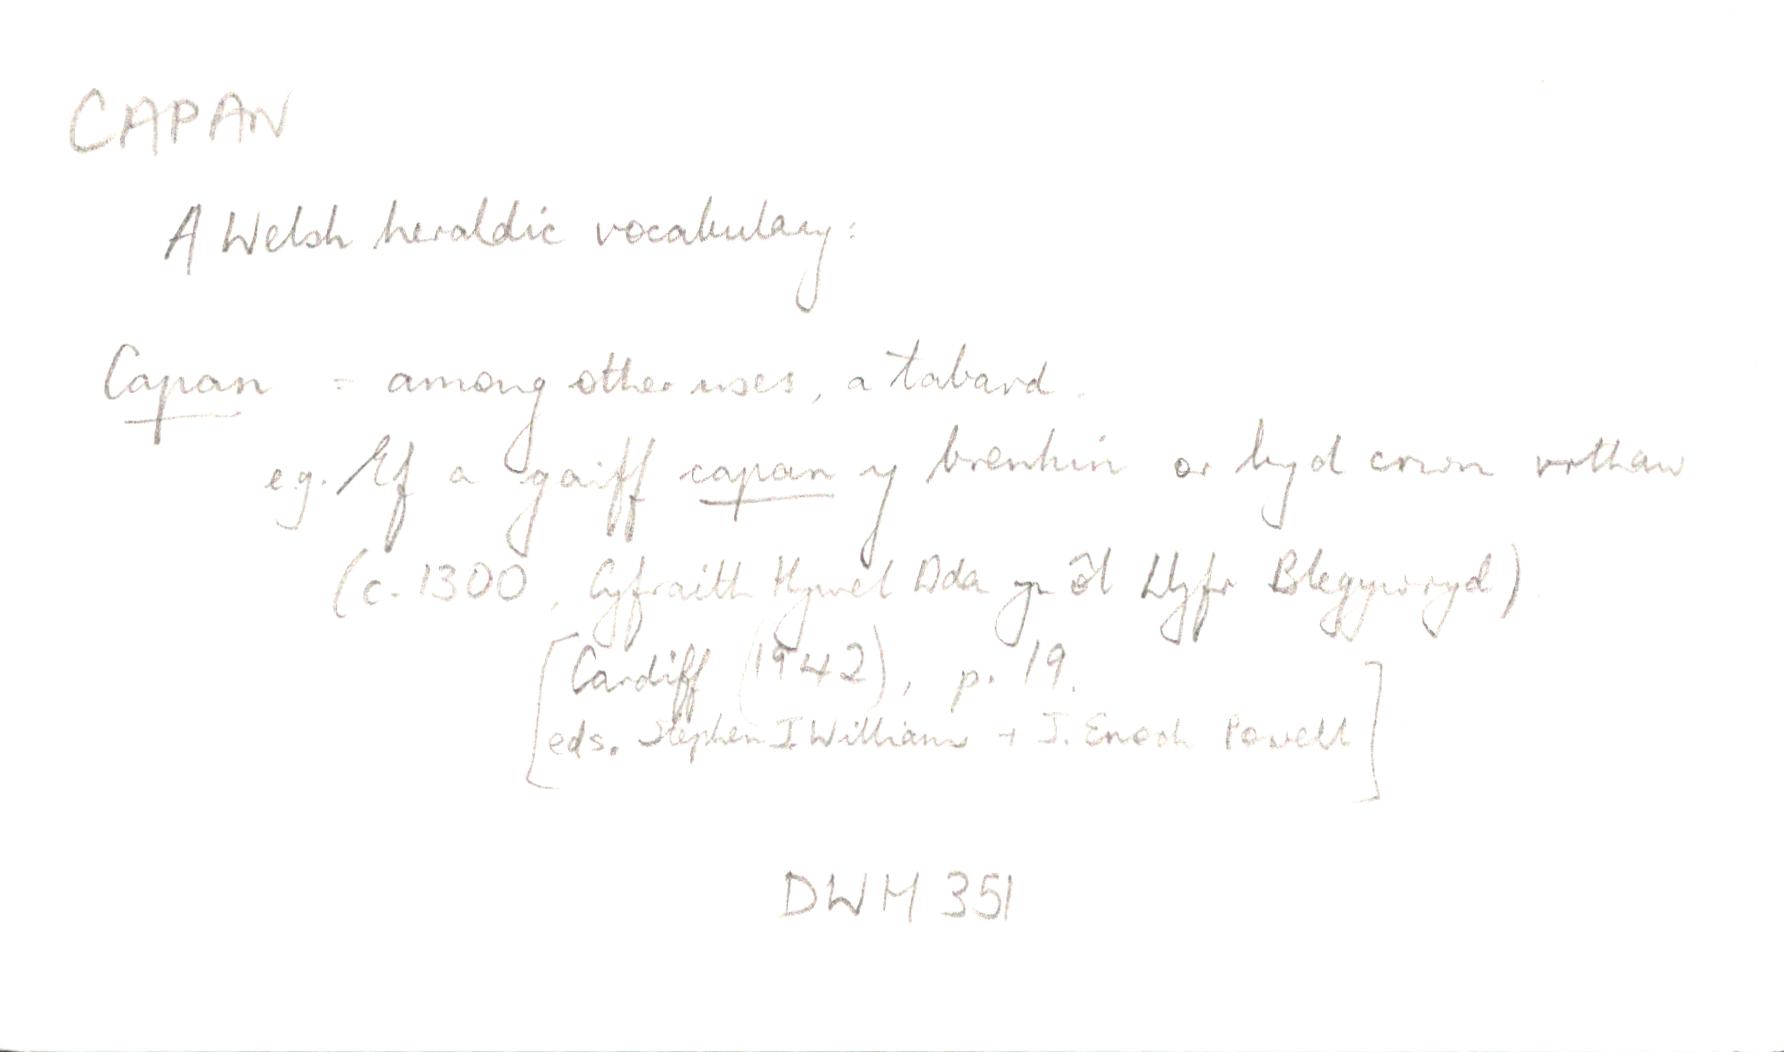 CAPAN
A Welsh heraldic vocabulary:
Capan = among other uses, a tabard.
e.g. Ef a gaiff capan y brenhin or byd croen wrthaw
(c. 1300, Cyfraith Hywel Dda yn ôl Llyfr Blegywryd)
[Cardiff (1942), p. 19.
eds. Stephen J. Williams + J. Enoch Powell]
DWM 351